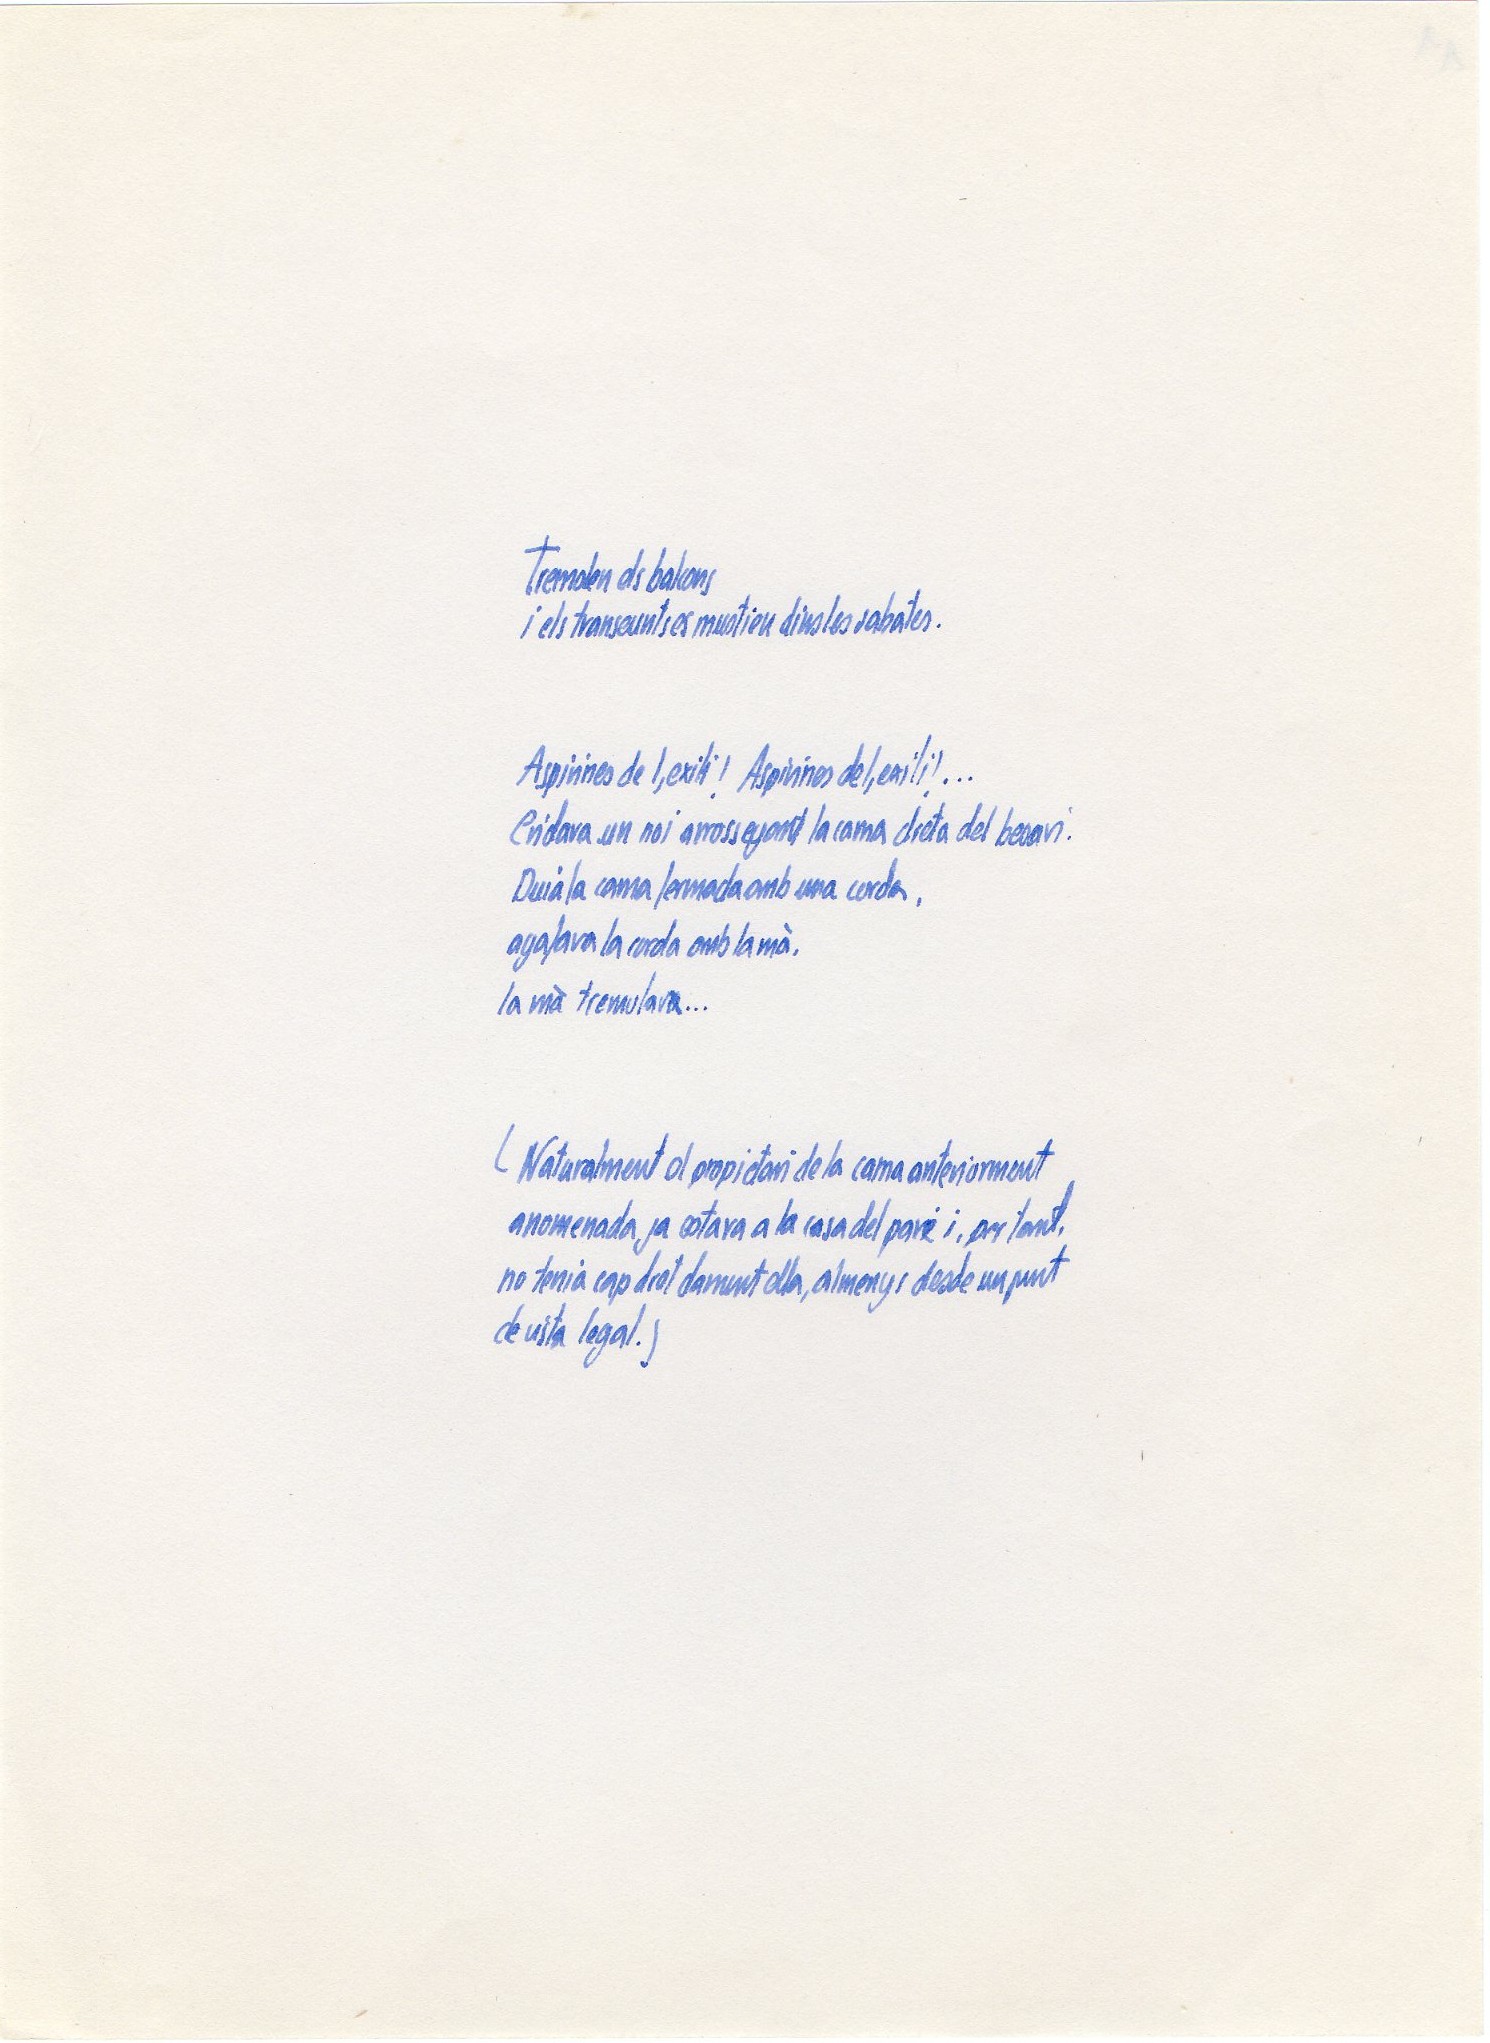 Tremolen els balcons
i els transeunts es mustien dins les sabates.
Aspirines de l,exili! Aspirines de l,exili!...
Cridava un noi arrossegant la cama dreta del besavi.
Duia la cama fermada amb una corda,
agafava la corda amb la mà.
la mà tremulava...
(Naturalment el propietari de la cama anteriorment
anomenada ja estava a la casa del pare i, per tant,
no tenia cap dret damunt ella, almenys desde un punt
de vista legal.)